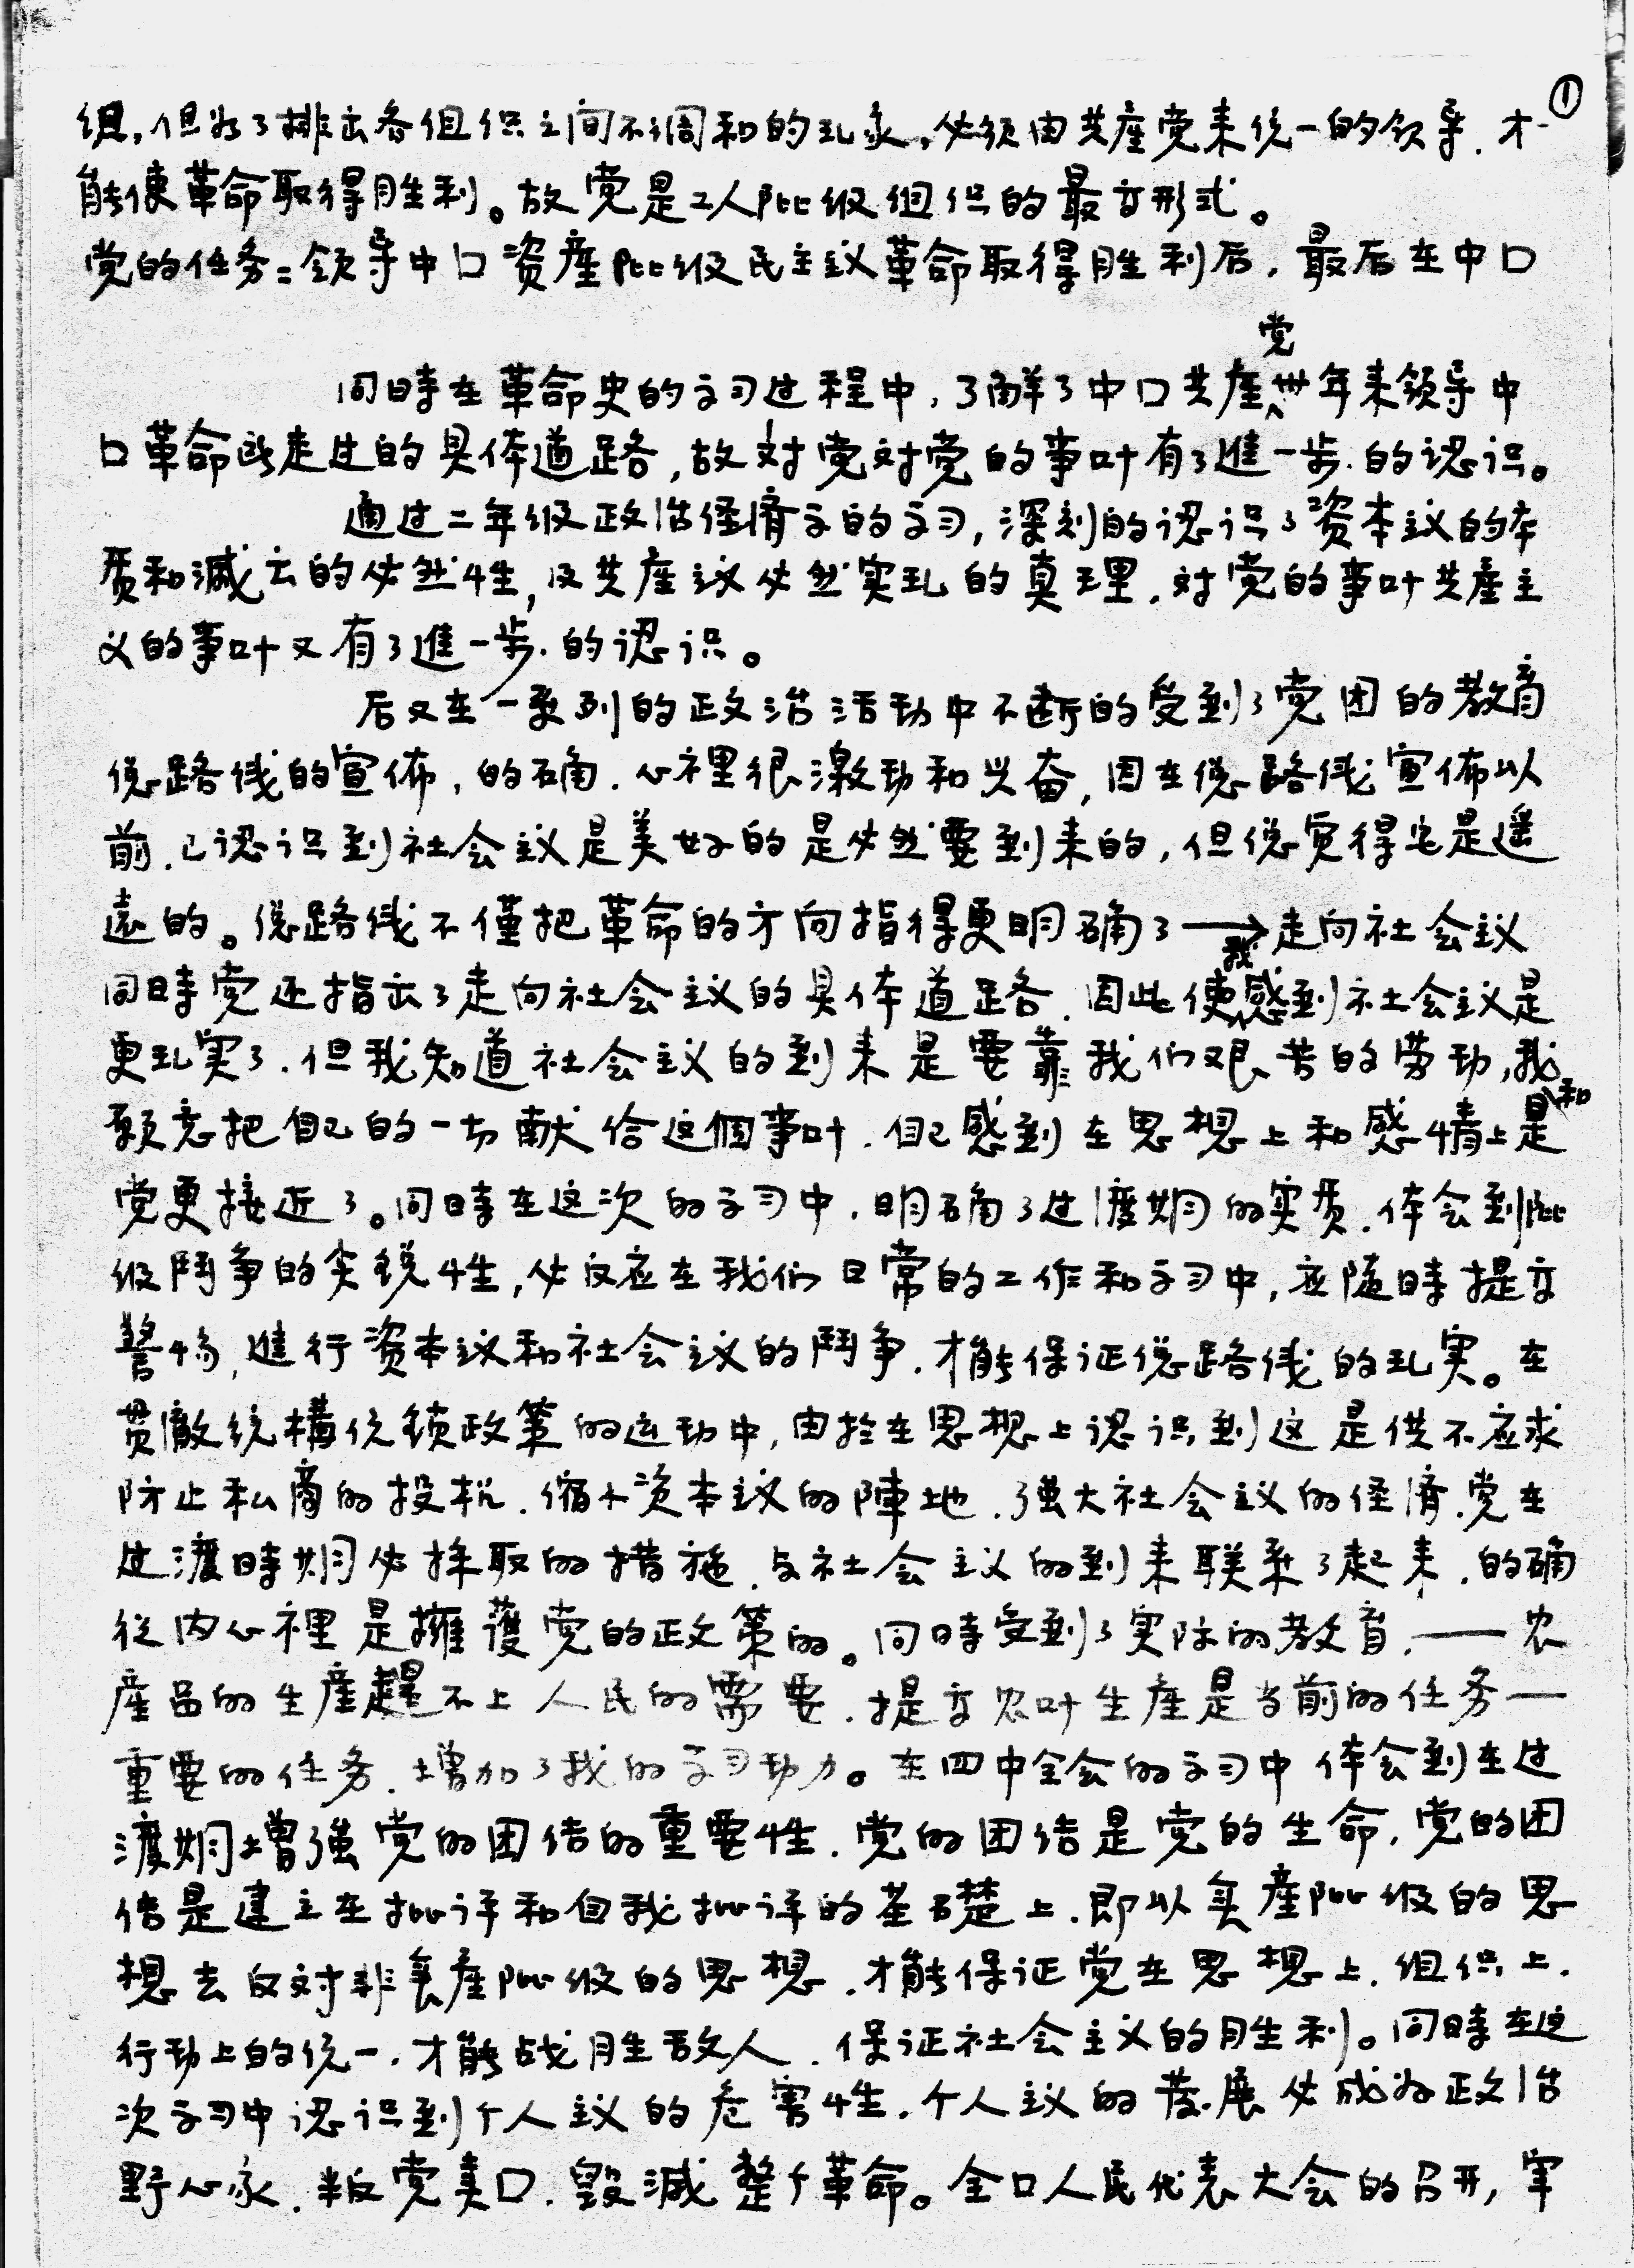 ①
组,但为了排去各组织之间不调和的现象,必须由共產党来统一的领导.才
能使革命取得胜利。故党是工人阶级组织的最高形式。
党的任务:领导中口资產阶级民主议革命取得胜利后,最后在中口
同時在革命史的学习过程中,了解了中口共產党卅年来领导中
口革命所走过的具体道路,故对党对党的事叶有了進一步.的认识。
通过二年级政治经济学的学习,深刻的认识了资本议的本
质和滅亡的必然性,及共產议必然实现的真理.对党的事叶共產主
义的事叶又有了進一步.的认识。
后又在一系列的政治活动中不断的受到了党团的教育
总路线的宣佈,的确.心裡很激动和兴奋,因在总路线宣佈以
前.已认识到社会议是美好的是必然要到来的,但总觉得它是遥
远的。总路线不僅把革命的方向指得更明确了→走向社会议
同時党还指出了走向社会议的具体道路.因此使我感到社会议是
更现实了.但我知道社会议的到来是要靠我们艰苦的劳动,我
愿意把自己的一切献给这個事叶.自己感到在思想上和感情上是和
党更接近了。同時在这次的学习中.明确了过渡期的实质.体会到阶
级鬥争的尖锐性,必反应在我们日常的工作和学习中,应随時提高
警惕,進行资本议和社会议的鬥争.才能保证总路线的现实。在
贯徹统購统销政策的运动中,由於在思想上认识到这是供不应求
防止私商的投机.缩小资本议的陣地.强大社会议的经济.党在
过渡時期必採取的措施.与社会主义的到来联系了起来.的确
從内心裡是擁護党的政策的。同時受到了实际的教育.——农
產品的生產趕不上人民的需要.提高农叶生產是当前的任务—
重要的任务.增加了我的学习动力。在四中全会的学习中体会到在过
渡期增強党的团结的重要性.党的团结是党的生命.党的团
结是建立在批评和自我批评的基礎上.即以無產阶级的思
想去反对非無產阶级的思想.才能保证党在思想上.组织上.
行动上的统一.才能战胜敌人.保证社会主义的胜利。同時在这
次学习中认识到个人议的危害性.个人议的发展必成为政治
野心家.叛党卖口.毁滅整个革命。全口人民代表大会的召开,宪